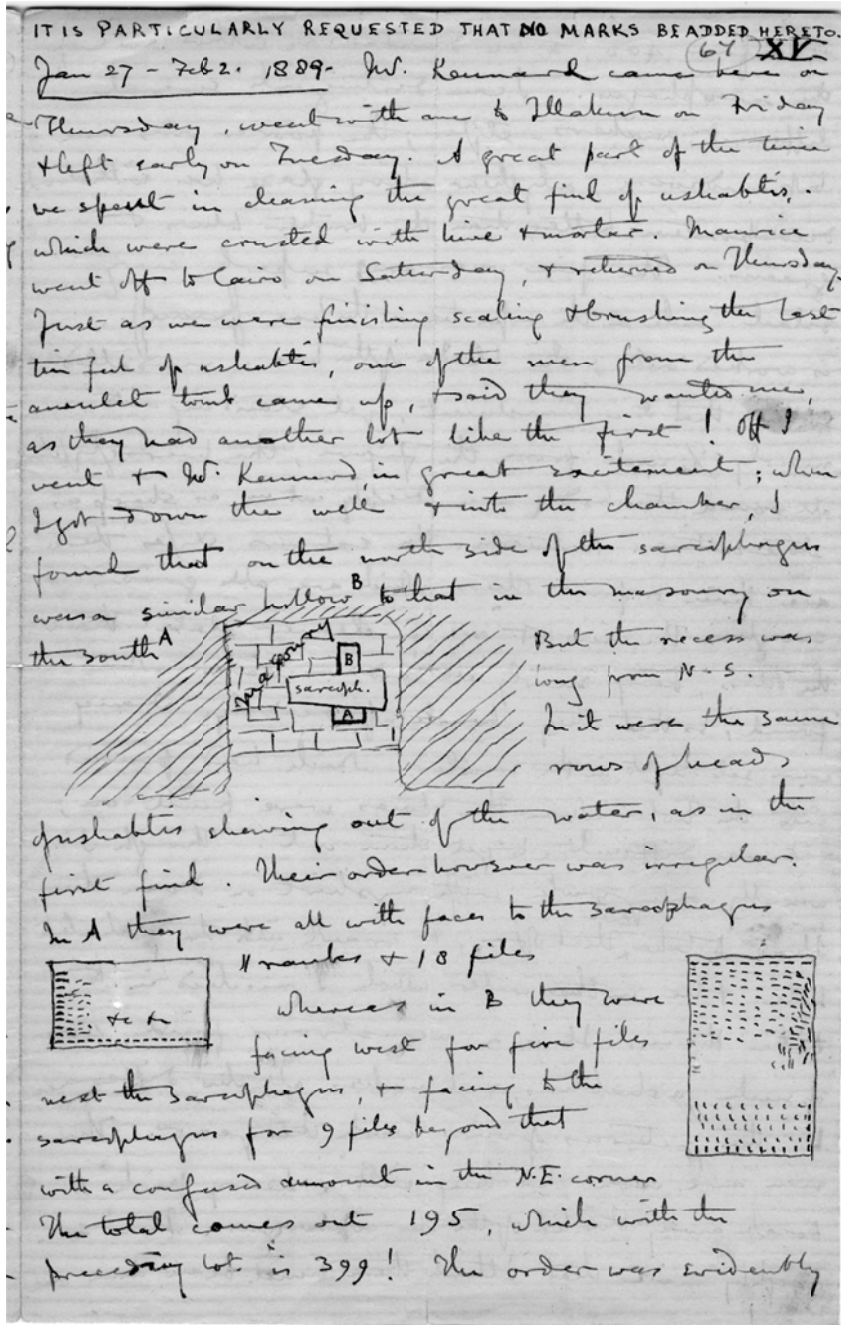 IT IS PARTICULARLY REQUESTED THAT NO MARKS BE ADDED HERETO.
(67) XV
Jan 27 - Feb 2. 1889. Mr. Kennard came here on
Thursday, went with me to Illahun on Friday
& left early on Tuesday. A great part of the time
we spent in cleaning the great find of ushabtis,
which were crusted with lime & mortar. Maurice
went off to Cairo on Saturday, & returned on Thursday.
Just as we were finishing scaling & brushing the last
tin full of ushabtis, one of the men from the
amulet tomb came up, & said they wanted me,
as they had another lot like the first! Off I
went & Mr. Kennard, in great excitement; when
I got down the well & into the chamber, I
found that on the north side of the sarcophagus
was a similar hollow B to that in the masonry on
the south A
masonry
B
sarcoph.
A
But the recess was
long from N-S.
In it were the same
rows of heads
of ushabtis shewing out of the water, as in the
first find. Their order however was irregular.
In A they were all with faces to the sarcophagus
11 ranks & 18 files
&c &c
whereas in B they were
facing west for five files
next the sarcophagus, & facing to the
sarcophagus for 9 files beyond that
with a confused amount in the N.E. corner
The total comes out 195, which with the
preceding lot is 399! The order was evidently